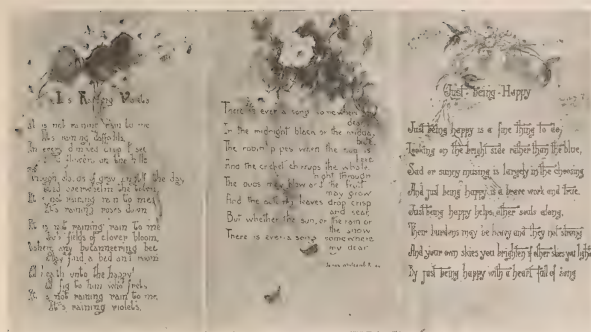 It's Raining Violets
It is not raining rain to me
It's raining daffodils
In every dimpled drop I see
flowers on the hills
clouds of gray engulf the day
And overwhelm the town
It's not raining rain to me
It's raining roses down
It is not raining rain to me
But fields of clover bloom,
Where any buccaneering bee
May find a bed and room
health unto the happy!
A fig to him who frets
It is not raining rain to me,
It's raining violets.
There is ever a song somewhere
dear
In the midnight black or the midday
blue
The robin pipes when the sun is
here
And the cricket chirrups the whole
night through
The buds may blow and the fruit
may grow
And the autumn leaves drop crisp
and sear
But whether the sun, or the rain or
the snow
There is ever a song somewhere
my dear
Just Being Happy
Just being happy is a fine thing to do,
Looking on the bright side rather than the blue,
Sad or sunny musing is largely in the choosing
And just being happy is a brave work and true.
Just being happy helps other souls along,
Their burdens may be heavy and they not strong
And your own skies you brighten if other skies you lighten
By just being happy with a heart full of song